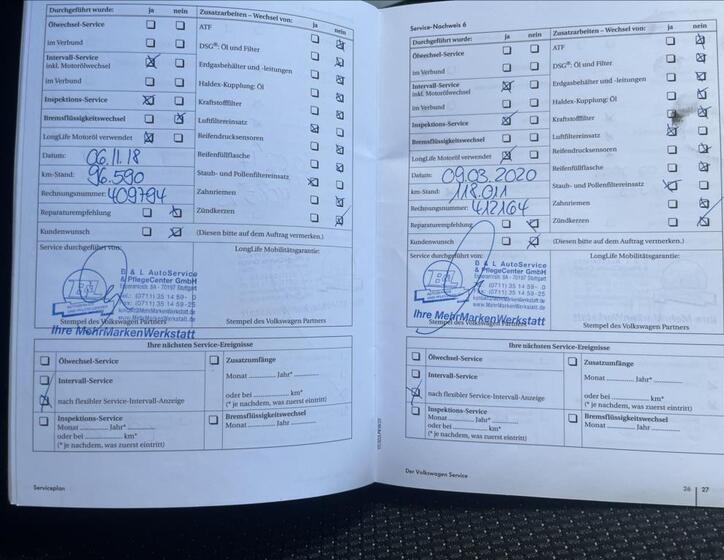 Durchgeführt wurde: ja nein
Ölwechsel-Service
im Verbund
Intervall-Service
inkl. Motorölwechsel
im Verbund
Inspektions-Service
Bremsflüssigkeitswechsel
LongLife Motoröl verwendet
Datum: 06.11.18
km-Stand: 96.590
Rechnungsnummer: 409794
Reparaturempfehlung
Kundenwunsch
Zusatzarbeiten – Wechsel von: ja nein
ATF
DSG®: Öl und Filter
Erdgasbehälter und -leitungen
Haldex-Kupplung: Öl
Kraftstofffilter
Luftfiltereinsatz
Reifendrucksensoren
Reifenfüllflasche
Staub- und Pollenfiltereinsatz
Zahnriemen
Zündkerzen
(Diesen bitte auf dem Auftrag vermerken.)
Service durchgeführt von:
B & L AutoService
& PflegeCenter GmbH
70197 Stuttgart
(0711) 35 14 59-0
(0711) 35 14 59-25
Stempel des Volkswagen Partners
Ihre MehrMarkenWerkstatt
LongLife Mobilitätsgarantie:
Stempel des Volkswagen Partners
Ihre nächsten Service-Ereignisse
Ölwechsel-Service
Intervall-Service
nach flexibler Service-Intervall-Anzeige
Inspektions-Service
Monat Jahr*
oder bei km*
(* je nachdem, was zuerst eintritt)
Zusatzumfänge
Monat Jahr*
oder bei km*
(* je nachdem, was zuerst eintritt)
Bremsflüssigkeitswechsel
Monat Jahr
Serviceplan
Service-Nachweis 6
Durchgeführt wurde: ja nein
Ölwechsel-Service
im Verbund
Intervall-Service
inkl. Motorölwechsel
im Verbund
Inspektions-Service
Bremsflüssigkeitswechsel
LongLife Motoröl verwendet
Datum: 09.03.2020
km-Stand: 118.011
Rechnungsnummer: 412164
Reparaturempfehlung
Kundenwunsch
Zusatzarbeiten – Wechsel von: ja nein
ATF
DSG®: Öl und Filter
Erdgasbehälter und -leitungen
Haldex-Kupplung: Öl
Kraftstofffilter
Luftfiltereinsatz
Reifendrucksensoren
Reifenfüllflasche
Staub- und Pollenfiltereinsatz
Zahnriemen
Zündkerzen
(Diesen bitte auf dem Auftrag vermerken.)
Service durchgeführt von:
B & L AutoService
& PflegeCenter GmbH
70197 Stuttgart
(0711) 35 14 59-0
(0711) 35 14 59-25
Ihre MehrMarkenWerkstatt
Stempel des Volkswagen Partners
LongLife Mobilitätsgarantie:
Stempel des Volkswagen Partners
Ihre nächsten Service-Ereignisse
Ölwechsel-Service
Intervall-Service
nach flexibler Service-Intervall-Anzeige
Inspektions-Service
Monat Jahr*
oder bei km*
(* je nachdem, was zuerst eintritt)
Zusatzumfänge
Monat Jahr*
oder bei km*
(* je nachdem, was zuerst eintritt)
Bremsflüssigkeitswechsel
Monat Jahr
Der Volkswagen Service
26 | 27